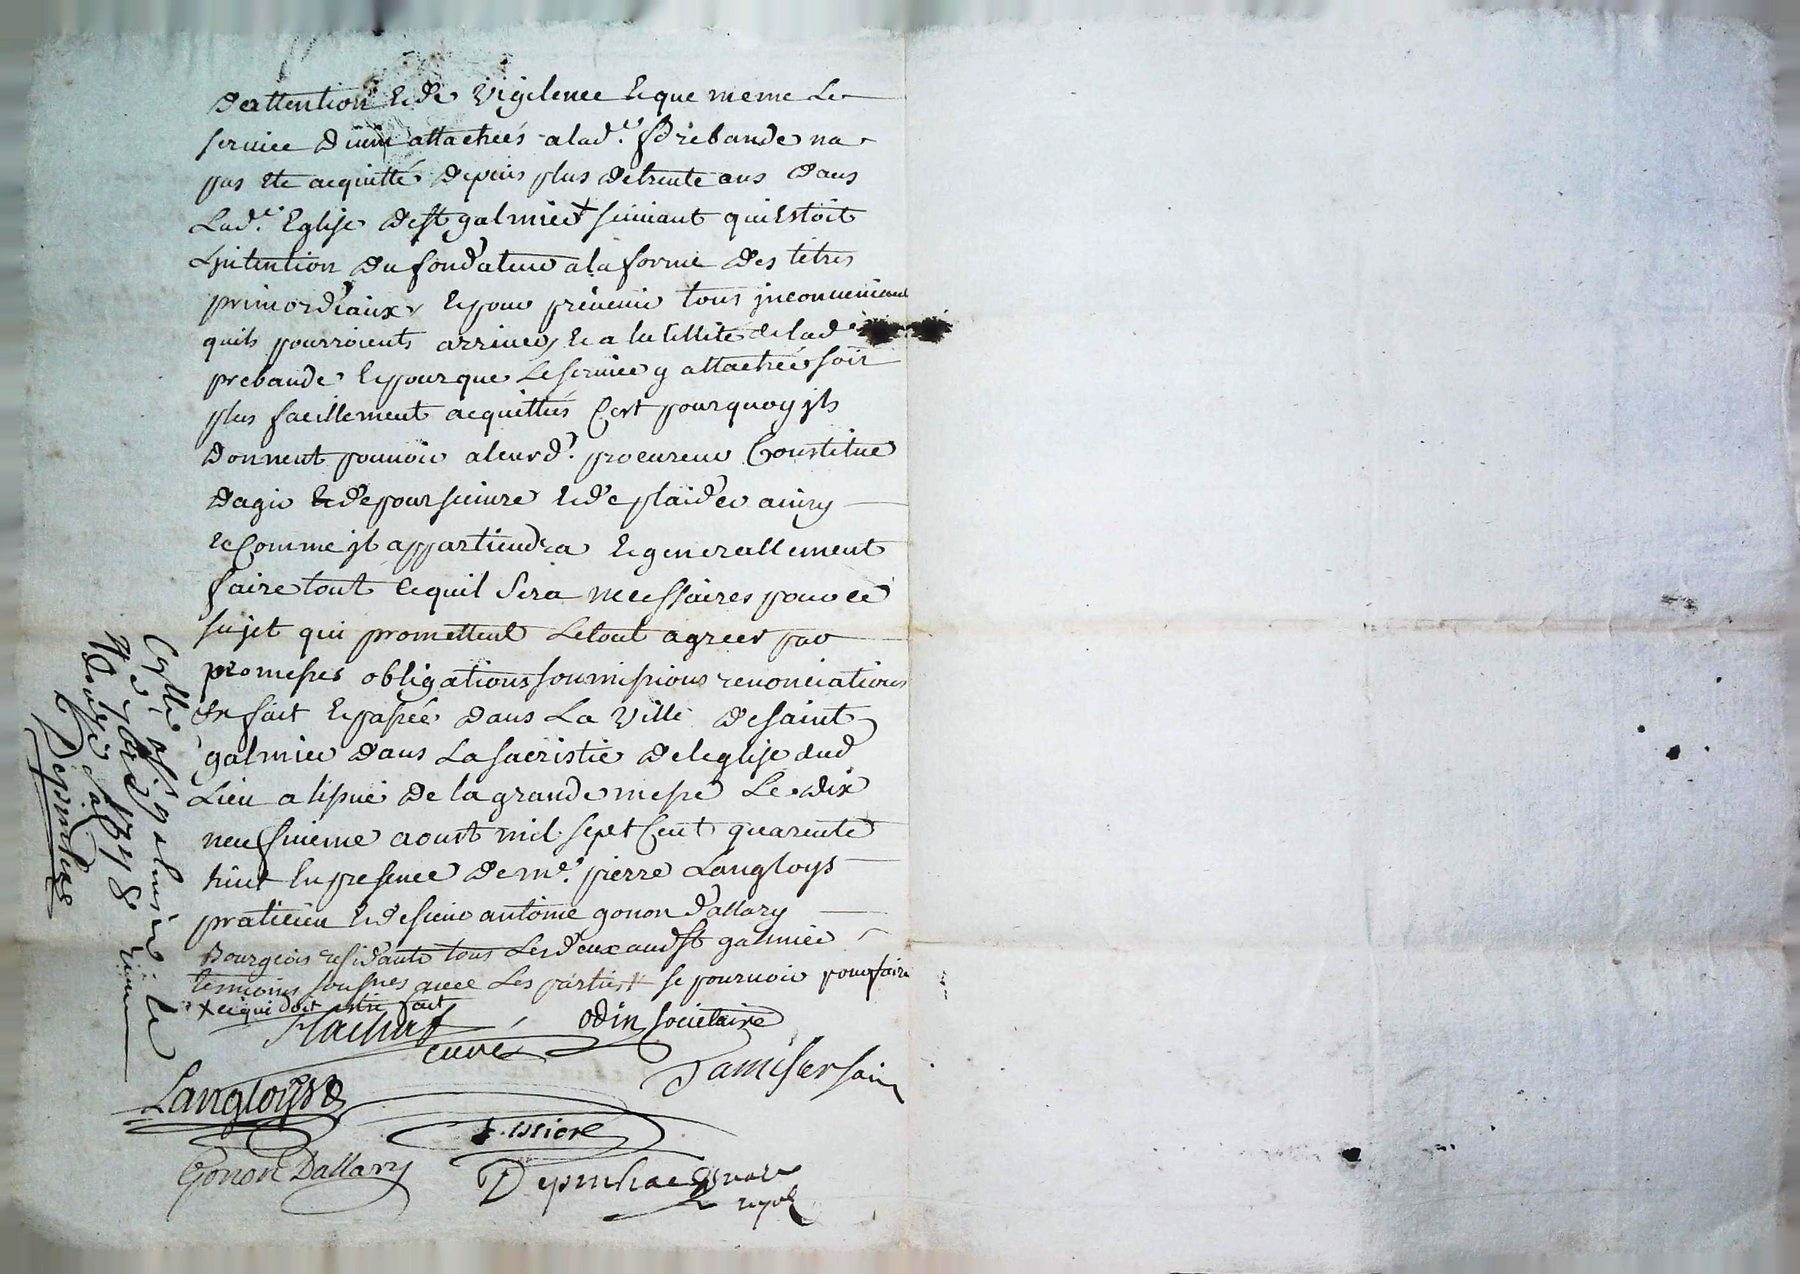 Dattention & de Vigilence & que meme Le
service Divin attachés a lad.e Prebande na
pas ete acquitté depuis plus detrente ans Dans
Lad.e Eglise de st galmier + suivant quiEstoit
Lintention Du fondateur a la forme Des titres
primordiaux & pour prevenir tous jnconvenient
quils pourroients arriver, & a lutillité de lad
prebande & pour que Le service y attachée soit
plus facillement acquittés Cest pourquoy jls
Donnent pouvoir a leurd. procureur Constitué
Dagir & de poursuivre & de plaider ainsy
& Comme jl appartiendra & generallement
faire tout cequil sera necessaires pour ce
sujet qui promettent Le tout agreer par
promesses obligations soumissions renonciations
fait & passée Dans La Ville De saint
galmier Dans La sacristie De leglise dud
Lieu a lissue De la grande messe Le dix
neufvieme aoust mil sept Cent quarente
huit En presence De me. pierre Langloys
praticien & de sieur antoine gonon dallary
Bourgeois residants tous Les deux aud st galmier
temoins soussnes avec Les parties + se pourvoir pour faire
+ ce qui doit estre fait
Flachat
curé
odin societaire
Jamier
Langloys
tissiere
Gonon Dallary
Depinhac
Not.
royal
Cllé a st galmier le
7bre 1748
Douze sols
Depinhac